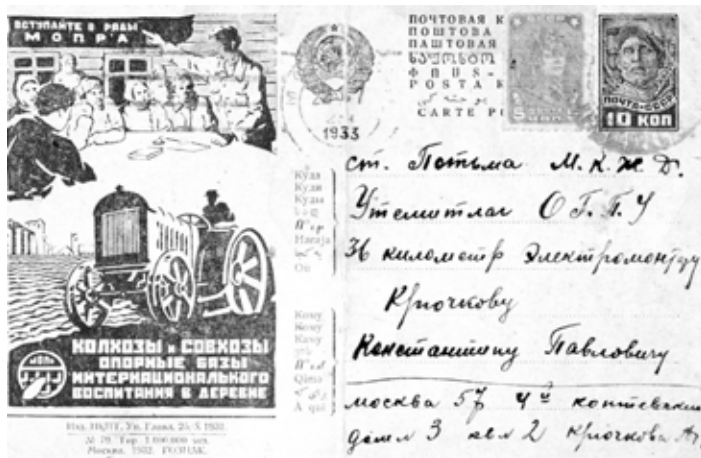 ВСТУПАЙТЕ В РЯДЫ
МОПР'А
КОЛХОЗЫ и СОВХОЗЫ
ОПОРНЫЕ БАЗЫ
ИНТЕРНАЦИОНАЛЬНОГО
ВОСПИТАНИЯ В ДЕРЕВНЕ
№ 79. Тир. 1.000.000 экз.
Москва. 1932. ГОЗНАК.
1933
ПОЧТОВАЯ К
ПОШТОВА
ПАШТОВАЯ
POSTA K
CARTE PO
ПОЧТА СССР
10 КОП
Куда
Куди
Куды
Haraja
Кому
Кому
Каму
Qima
A qui
ст. Потьма М.К.Ж.Д.
Утемитлаг О.Г.П.У
36 километр Электромонтеру
Крючкову
Константину Павловичу
Москва 57 4й
дом 3 кв 2 Крючкова